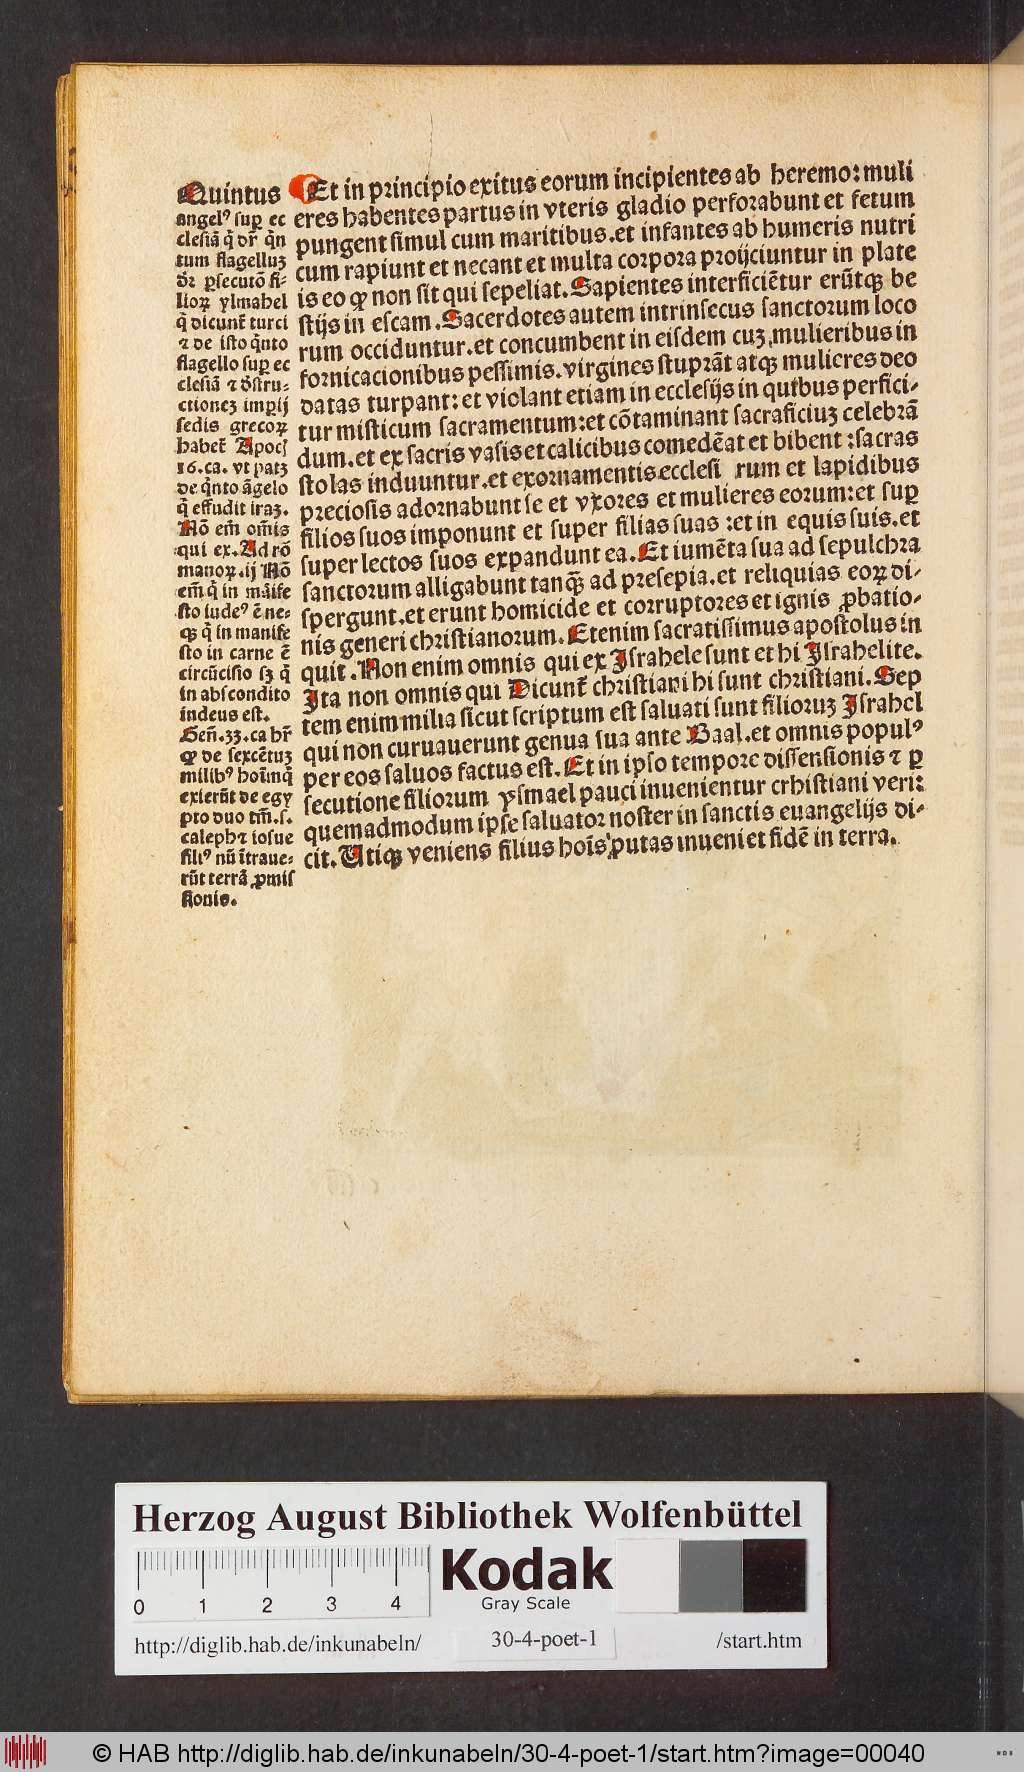 Quintus
angelꝰ suꝑ ec
clesiā q̄ dr̄ q̄n
tum flagelluꝫ
dr̄ ꝑsecutō fi-
lioꝝ ylmahel
q̄ dicunt̄ turci
⁊ de isto q̄nto
flagello suꝑ ec
clesiā ⁊ dr̄stru-
ctioneꝫ imꝑij
sedis grecoꝝ
habet̄ Apocſ
16.ca. vt patꝫ
de q̄nto āgelo
q̄ effudit iraꝫ.
Nō em̄ om̄is
qui ex. Ad rō
manoꝝ.ij Nō
em̄ q̄ in māife
sto iudeꝰ ē ne-
qꝫ q̄ in manife
sto in carne ē
circūcisio sꝫ q̄
in abscondito
indeus est.
Gen̄.33.ca hr̄
ꝙ de sexcētuꝫ
milibꝰ hoīmq̄
exierūt de egy
pto duo tm̄.s.
caleph⁊ iosue
filiꝰ nū ītraue-
rūt terrā ꝓmiſ
sionis.
Et in principio exitus eorum incipientes ab heremo: muli
eres habentes partus in vteris gladio perforabunt et fetum
pungent simul cum maritibus.et infantes ab humeris nutri
cum rapiunt et necant et multa corpora proijciuntur in plate
is eo ꝙ non sit qui sepeliat. Sapientes interficiētur erūtqꝫ be
stijs in escam. Sacerdotes autem intrinsecus sanctorum loco
rum occiduntur.et concumbent in eisdem cuꝫ mulieribus in
fornicacionibus pessimis.virgines stuprāt atqꝫ mulieres deo
datas turpant: et violant etiam in ecclesijs in quibus perfici-
tur misticum sacramentum:et cōtaminant sacraficiuꝫ celebrā
dum.et ex sacris vasis et calicibus comedēat et bibent :sacras
stolas induuntur.et exornamentis ecclesi rum et lapidibus
preciosis adornabunt se et vxores et mulieres eorum:et suꝑ
filios suos imponunt et super filias suas :et in equis suis.et
super lectos suos expandunt ea. Et iumēta sua ad sepulchra
sanctorum alligabunt tanqꝫ ad presepia.et reliquias eoꝝ di-
spergunt.et erunt homicide et corruptores et ignis ꝓbatio-
nis generi christianorum. Etenim sacratissimus apostolus in
quit. Non enim omnis qui ex Israhele sunt et hi Israhelite.
Ita non omnis qui Dicunt̄ christiani hi sunt christiani. Sep
tem enim milia sicut scriptum est saluati sunt filioruꝫ Israhel
qui non curuauerunt genua sua ante Baal.et omnis populꝰ
per eos saluos factus est. Et in ipso tempore dissensionis ⁊ ꝑ
secutione filiorum ysmael pauci inuenientur crhistiani veri:
quemadmodum ipse saluator noster in sanctis euangelijs di-
cit. Utiqꝫ veniens filius hoīs putas inueniet fidē in terra.
Herzog August Bibliothek Wolfenbüttel
0 1 2 3 4
Kodak
Gray Scale
http://diglib.hab.de/inkunabeln/ 30-4-poet-1 /start.htm
© HAB http://diglib.hab.de/inkunabeln/30-4-poet-1/start.htm?image=00040